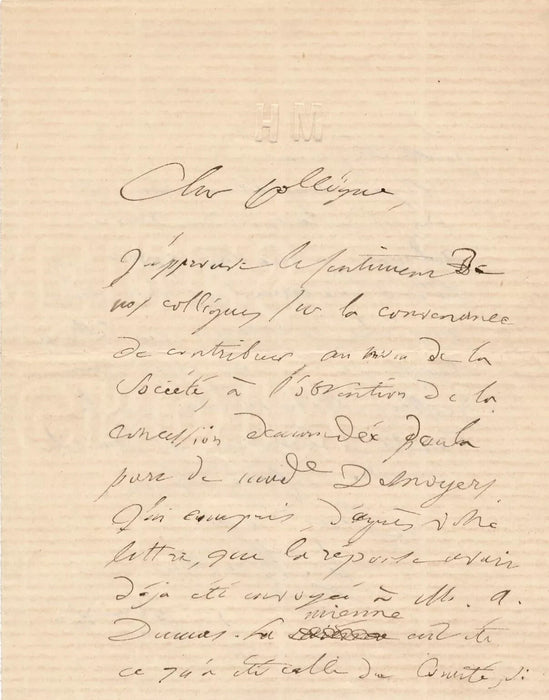 HM
Cher collègue,
J'approuve le sentiment de
nos collègues sur la convenance
de contribuer au nom de la
Société, à l'obtention de la
concession demandée pour la
de Made Desnoyers
J'ai compris, d'après votre
lettre, que la réponse avait
déjà été envoyée à M. A.
Dumas. La mienne eut été
ce qu'a été celle du Comité, si